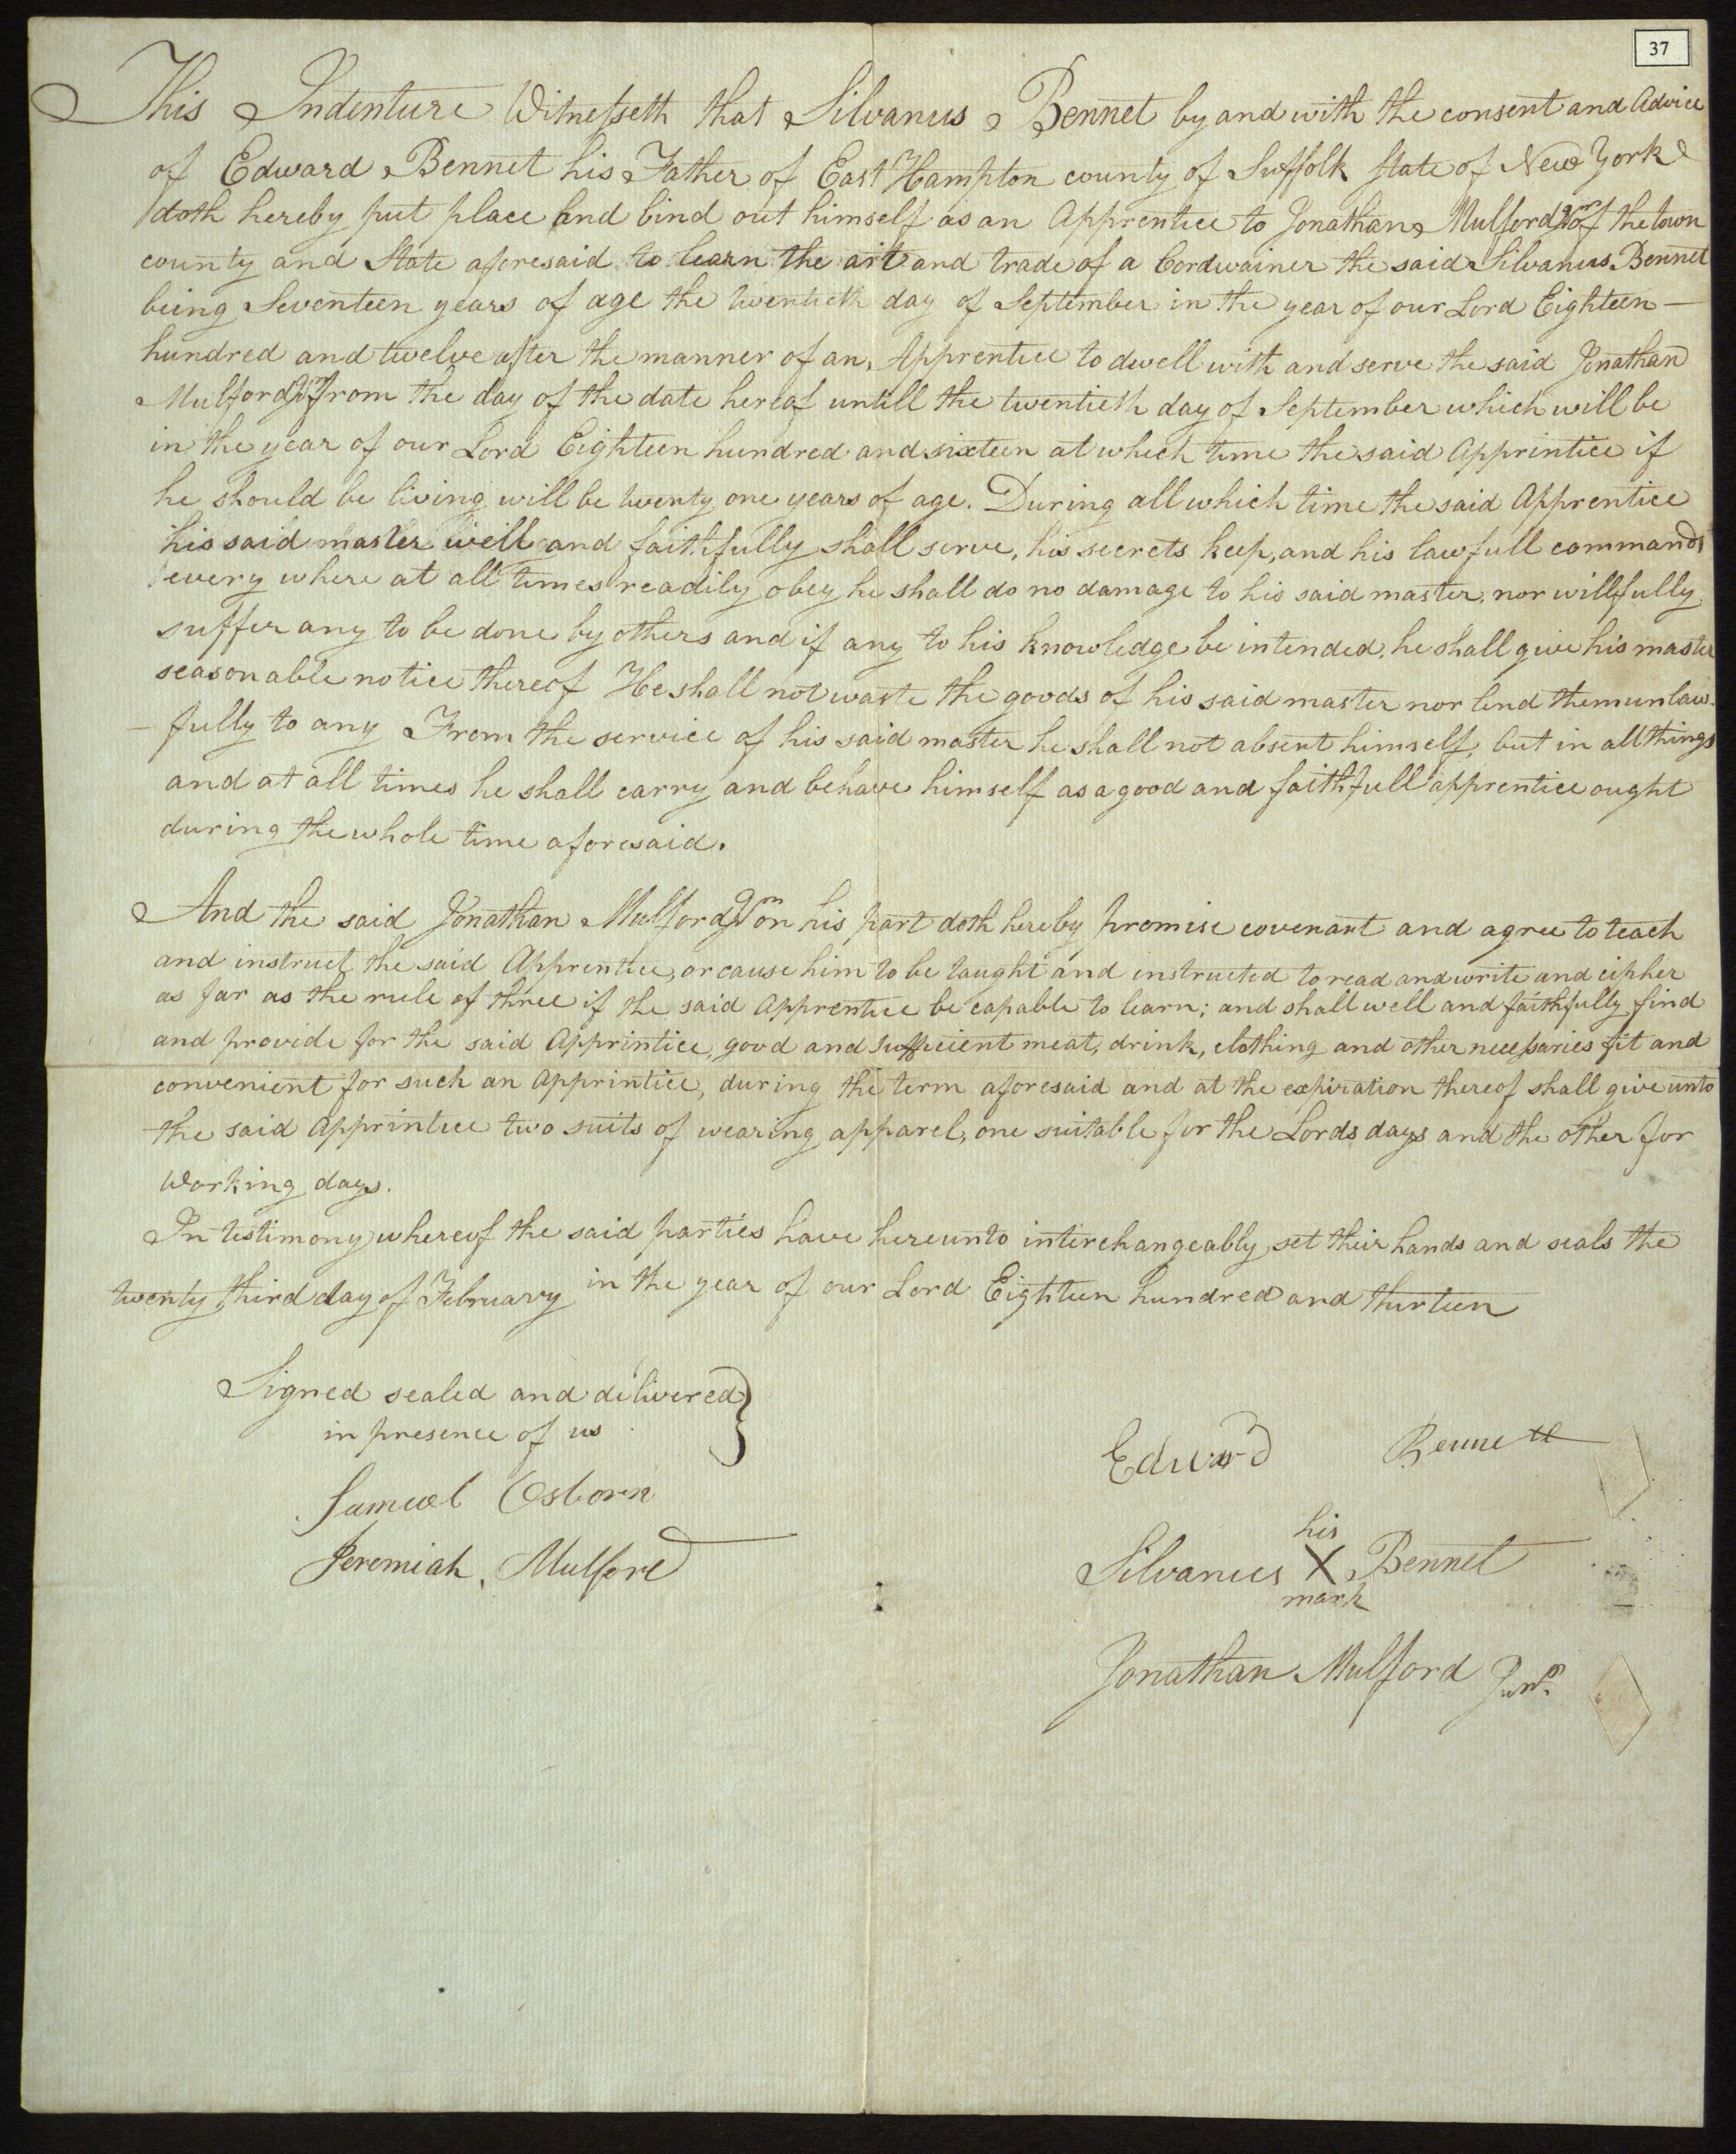 37
This Indenture Witnesseth that Silvanus Bennet by and with the consent and Advice
of Edward Bennet his Father of East Hampton county of Suffolk State of New York
doth hereby put place and bind out himself as an Apprentice to Jonathan Mulford Jnr of the town
county and State aforesaid to learn the art and trade of a Cordwainer the said Silvanus Bennet
being Seventeen years of age the twentieth day of September in the year of our Lord Eighteen—
hundred and twelve after the manner of an Apprentice to dwell with and serve the said Jonathan
Mulford Jnr from the day of the date hereof untill the twentieth day of September which will be
in the year of our Lord Eighteen hundred and sixteen at which time the said Apprintice if
he should be living will be twenty one years of age. During all which time the said Apprentice
his said master well and faithfully shall serve, his secrets keep, and his lawfull commands
every where at all times readily obey he shall do no damage to his said master, nor willfully
suffer any to be done by others and if any to his knowledge be intended, he shall give his master
seasonable notice thereof He shall not waste the goods of his said master nor lend them unlaw-
-fully to any From the service of his said master he shall not absent himself; but in all things
and at all times he shall carry and behave himself as a good and faithfull apprentice ought
during the whole time aforesaid.
And the said Jonathan Mulford Jnr on his part doth hereby promise covenant and agree to teach
and instruct the said Apprentice, or cause him to be taught and instructed to read and write and cipher
as far as the rule of three if the said Apprentice be capable to learn; and shall well and faithfully find
and provide for the said Apprintice, good and sufficient meat, drink, clothing and other necessaries fit and
convenient for such an Apprintice, during the term aforesaid and at the expiration thereof shall give unto
the said Apprintice two suits of wearing apparel, one suitable for the Lords days and the other for
working days.
In testimony whereof the said parties have hereunto interchangeably set their hands and seals the
twenty third day of February in the year of our Lord Eighteen hundred and thirteen
Signed sealed and delivered }
in presence of us
Samuel Osborn
Jeremiah Mulford
Edward Bennett
his
Silvanus X Bennet
mark
Jonathan Mulford Junr.